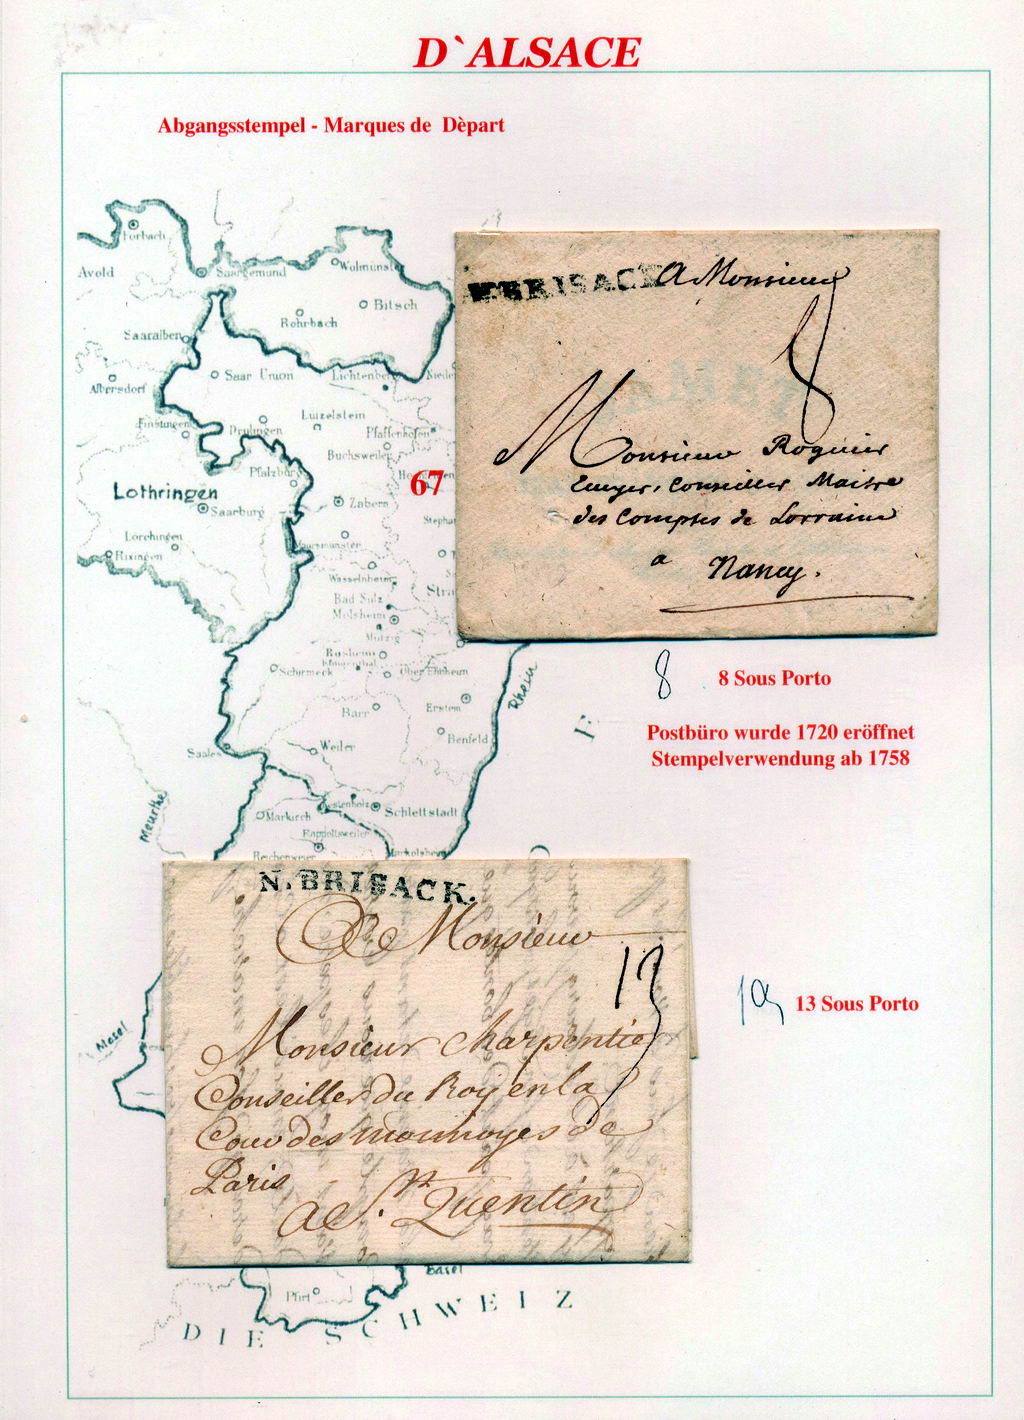 D`ALSACE
Abgangsstempel - Marques de Dèpart
Forbach
Avold
Saargemund
Wolmunst
Bitsch
Rohrbach
Saaralben
Saar Union
Lichtenberg
Niede
Albersdorf
Finstingen
Drulingen
Luizelstein
Pfaffenhofen
Buchsweiler
Pfalzburg
Lothringen
Saarburg
Zabern
Stepha
Lorchingen
Rixingen
Wasselnheim
Stra
Bad Sulz
Molsheim
Mutzig
Rosheim
Schirmeck
Ober Ehnheim
Barr
Erstein
Benfeld
Saales
Weiler
Rhein
E
Meurthe
Markirch
Schlettstadt
Rappoltsweiler
Reichenweier
Markolshe
67
BRISACK
A Monsieur
8
Monsieur Roguier
Ecuyer, Conseiller Maitre
des Comptes de Lorraine
a Nancy.
8
8 Sous Porto
Postbüro wurde 1720 eröffnet
Stempelverwendung ab 1758
N. BRISACK.
A Monsieur
13
Monsieur Charpentier
Conseiller du Roy en la
Cour des monnoyes de
Paris
a St. Quentin
13 Sous Porto
Mosel
Basel
Pfirt
DIE SCHWEIZ